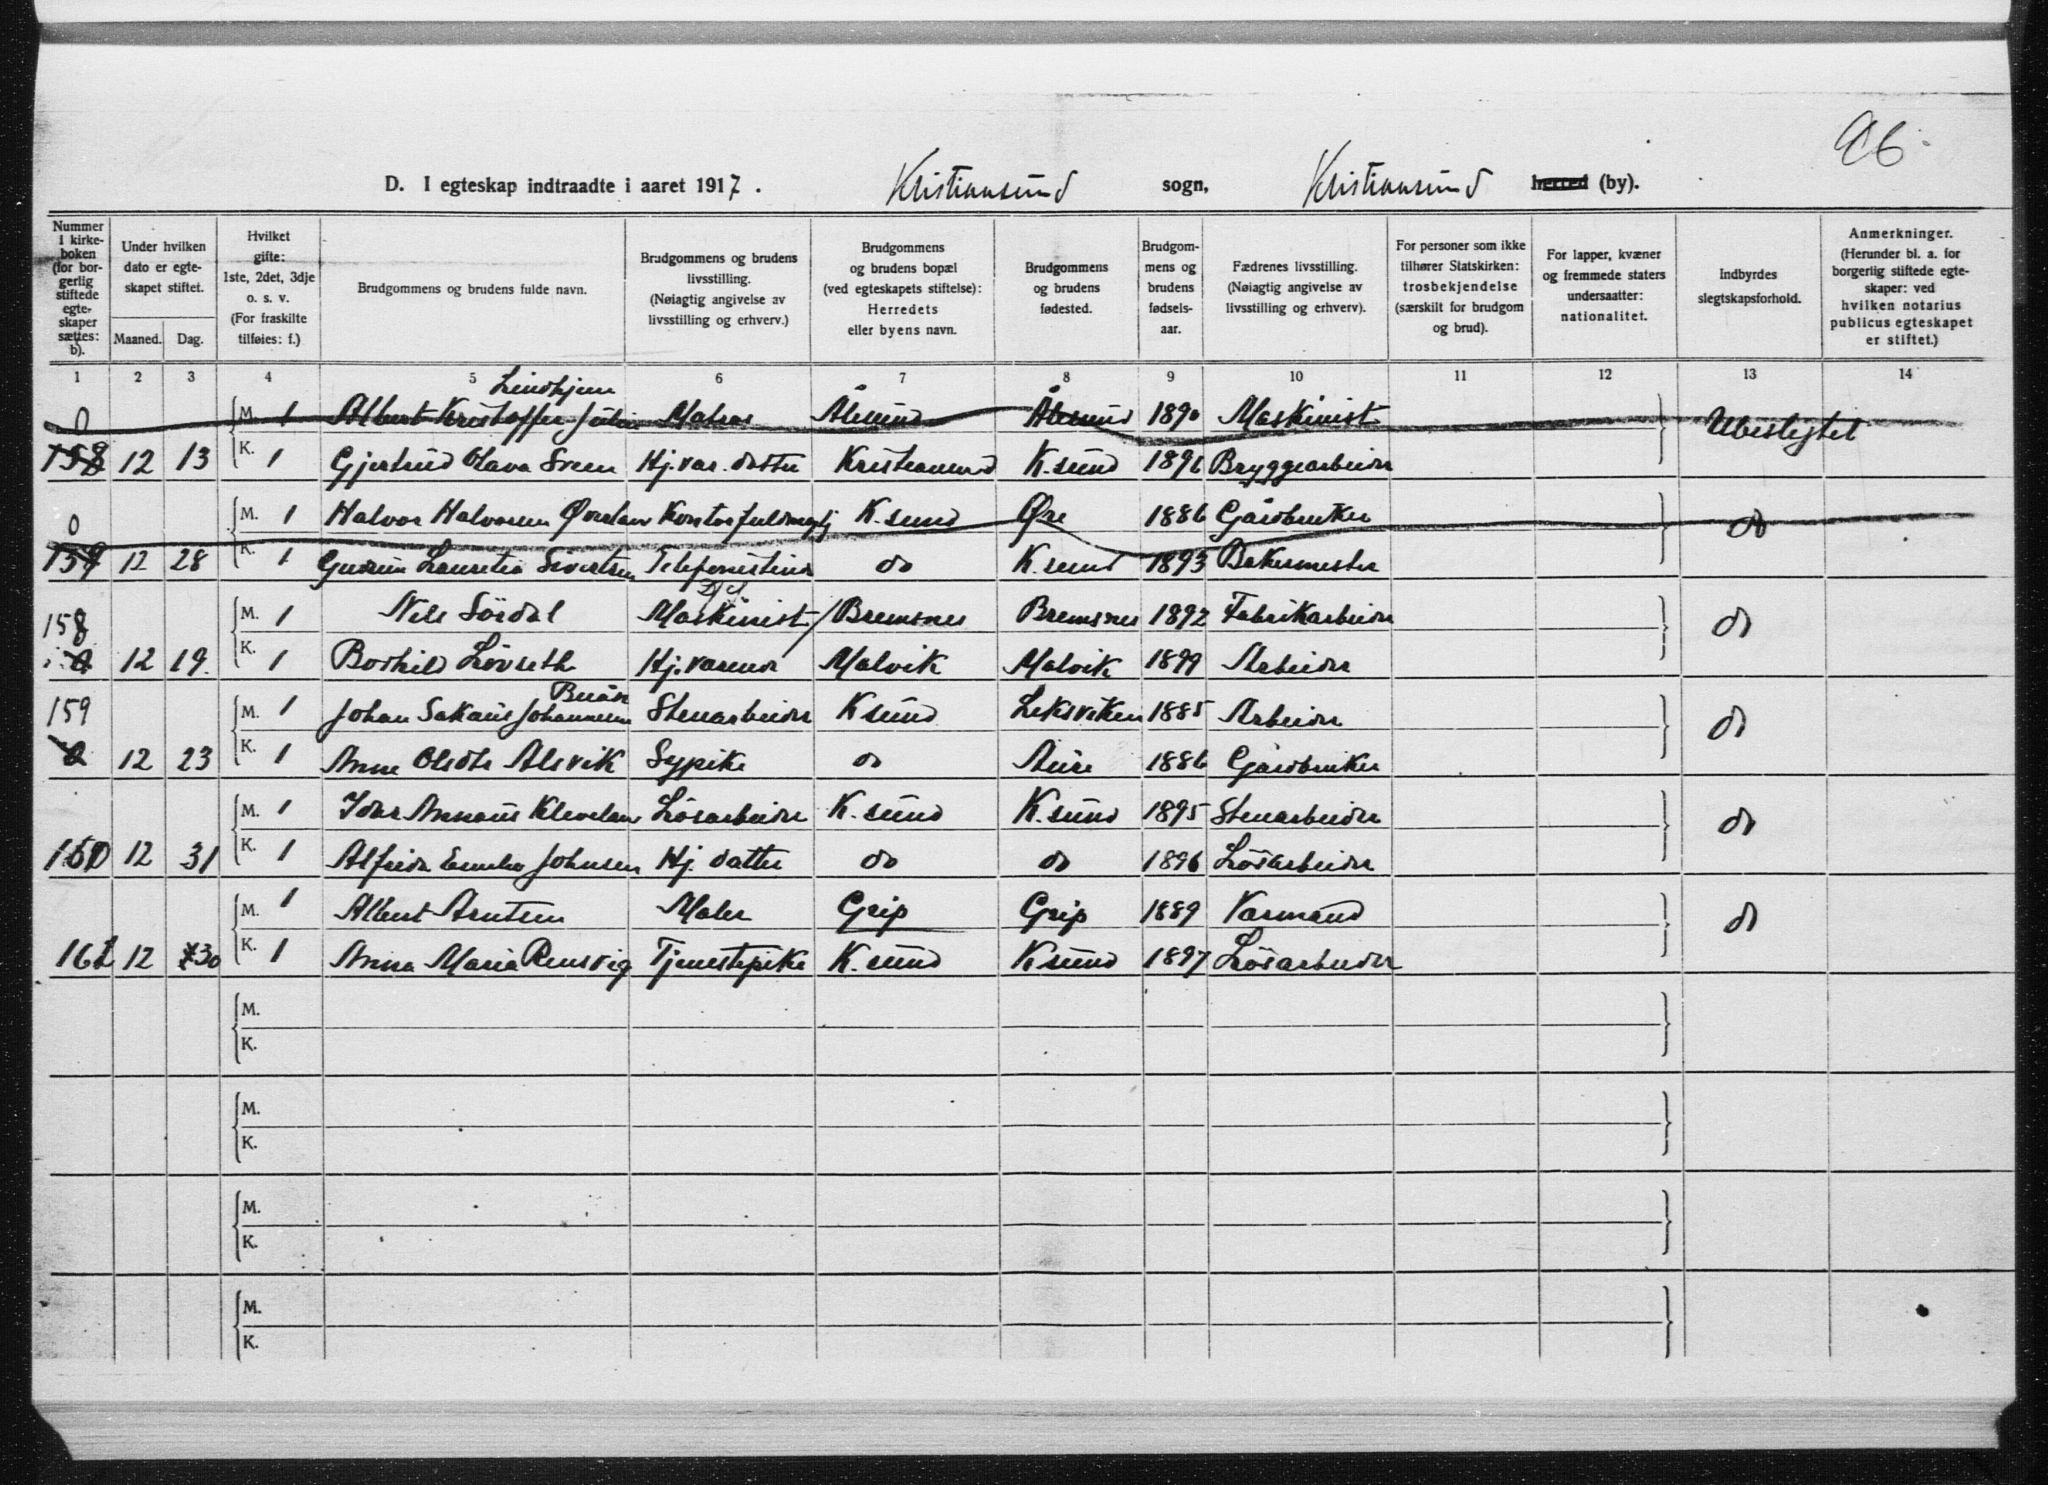 96.
D. I egteskap indtraadte i aaret 1917. Kristiansund sogn, Kristiansund herred (by).
Nummer i kirkeboken (for borgerlig stiftede egteskaper sættes: b). Under hvilken dato er egteskapet stiftet. Maaned. Dag. Hvilket gifte: 1ste, 2det, 3dje o. s. v. (For fraskilte tilføies: f.) Brudgommens og brudens fulde navn. Brudgommens og brudens livsstilling. (Nøiagtig angivelse av livsstilling og erhverv.) Brudgommens og brudens bopæl (ved egteskapets stiftelse): Herredets eller byens navn. Brudgommens og brudens fødested. Brudgommens og brudens fødselsaar. Fædrenes livsstilling. (Nøiagtig angivelse av livsstilling og erhverv). For personer som ikke tilhører Statskirken: trosbekjendelse (særskilt for brudgom og brud). For lapper, kvæner og fremmede staters undersaatter: nationalitet. Indbyrdes slegtskapsforhold. Anmerkninger. (Herunder bl. a. for borgerlig stiftede egteskaper: ved hvilken notarius publicus egteskapet er stiftet.)
1 2 3 4 5 6 7 8 9 10 11 12 13 14
Lindhjem
0 M. 1 Albert Kristoffer Julius Matros Ålesund Ålesund 1890 Maskinist Ubeslegtet
158 12 13 K. 1 Gjertrud Olava Sveen Hj.vær. datter Kristiansund K.sund 1896 Bryggearbeider
0 M. 1 Halvor Halvorsen Kontorfuldmægtig K.sund Øre 1886 Gårdbruker do
159 12 28 K. 1 Gudrun Lauretia Sivertsen Telefonistinde do K.sund 1893 Bakermester
158 M. 1 Nils Sördal Maskinist Bremsnes Bremsnes 1892 Fabrikarbeider do
12 19. K. 1 Borhild Lövseth Hj.værende Malvik Malvik 1899 Arbeider
Buås
159 M. 1 Johan Sakaris Johannesen Stenarbeider K sund Leksviken 1885 Arbeider do
12 23 K. 1 Anne Olsdtr Alsvik Sypike do Aure 1886 Gårdbruker
M. 1 Ivar Annæus Klevelan Lösarbeider K.sund K.sund 1895 Stenarbeider do
160 12 31 K. 1 Alfrida Johnsen Hj. datter do do 1896 Lösarbeider
M. 1 Albert Arntsen Maler Grip Grip 1889 Vaermand do
161 12 30 K. 1 Anna Maria Rensvig Tjenestepike K.sund K sund 1897 Lösarbeider
M.
K.
M.
K.
M.
K.
M.
K.